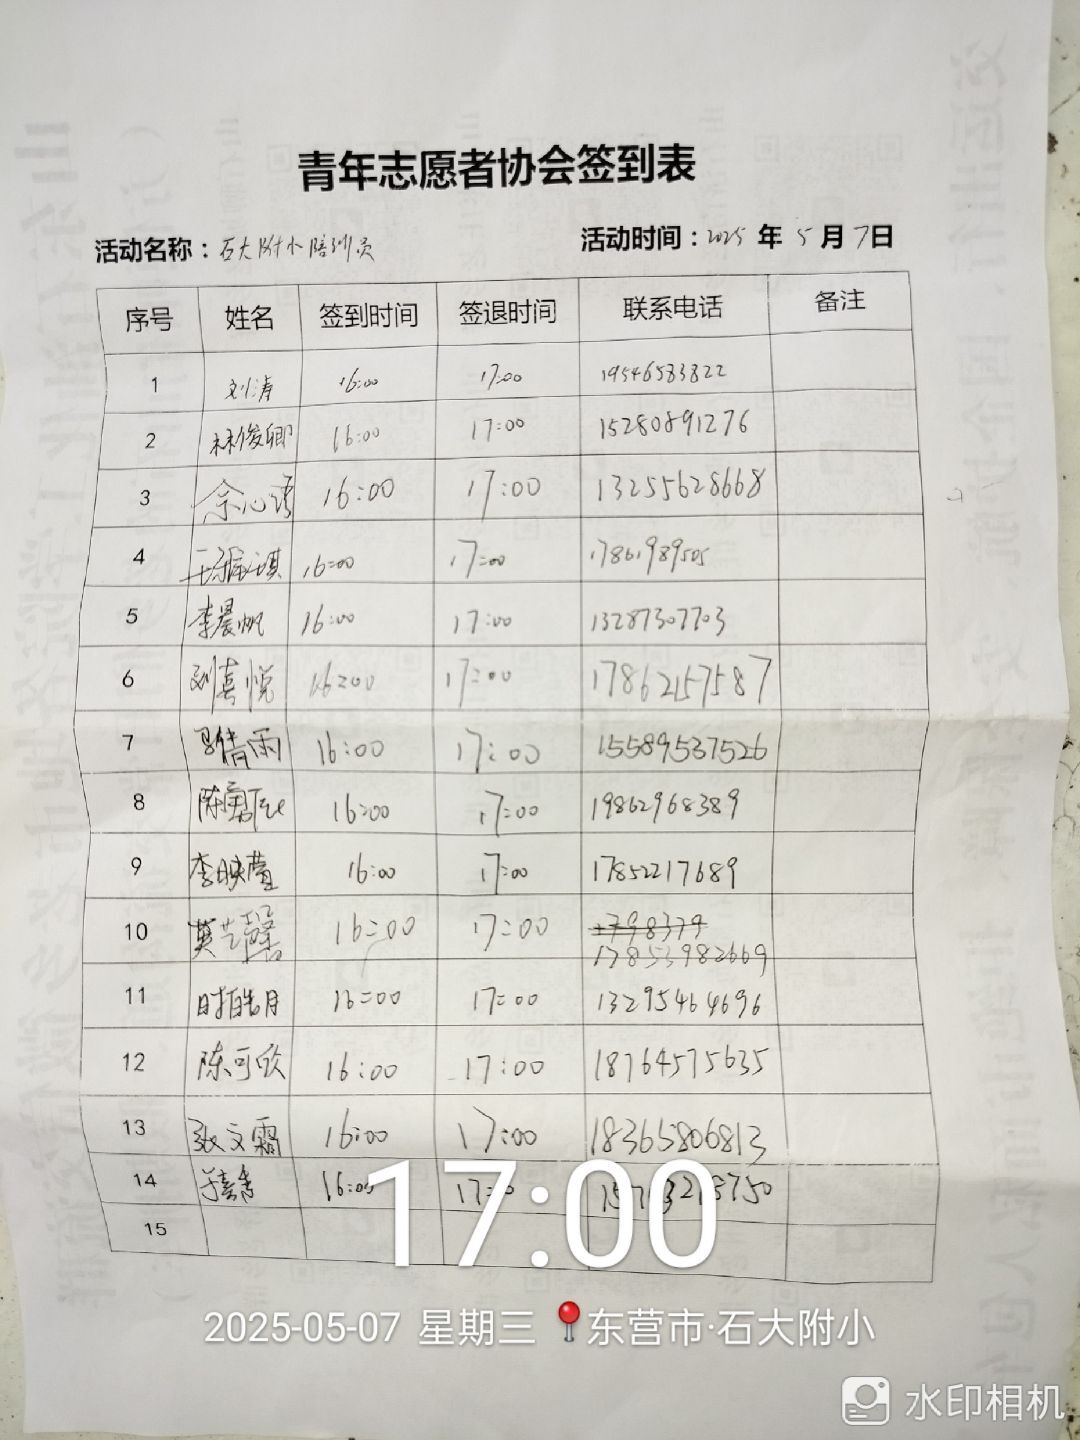 青年志愿者协会签到表
活动名称：石大附小陪训员 活动时间：2025年5月7日
序号 姓名 签到时间 签退时间 联系电话 备注
1 刘涛 16:00 17:00 19546583822
2 林俊卿 16:00 17:00 15280891276
3 余心语 16:00 17:00 13255628668
4 16:00 17:00 17861989505
5 李晨帆 16:00 17:00 13287307703
6 刘喜悦 16:00 17:00 17862157587
7 16:00 17:00 15589537526
8 16:00 17:00 19862968389
9 李映萱 16:00 17:00 17852217689
10 16:00 17:00
17853982669
11 时皓月 16:00 17:00 13295464696
12 陈可欣 16:00 17:00 18764575635
13 张文霜 16:00 17:00 18365806813
14 16:00
15
17:00
2025-05-07 星期三 东营市·石大附小
水印相机